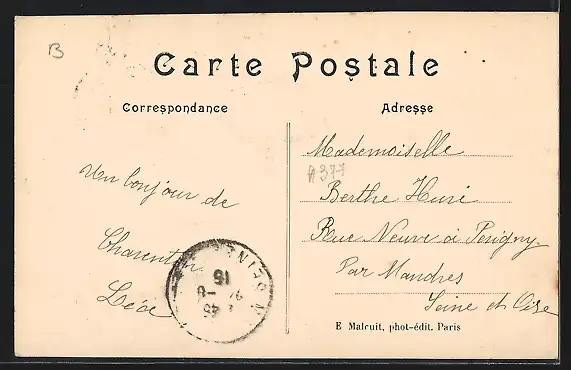 B
Carte Postale
Correspondance
Adresse
Un bonjour de
Charenton
Léa
Mademoiselle
A377
Berthe Huré
Rue Neuve à Périgny
Par Mandres
Seine et Oise
E Malcuit, phot-édit. Paris